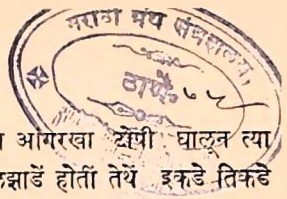 मराठी ग्रंथ संग्रहालय,
ठाणें.
आंगरखा टोंपी घालून त्या
झाडें होतीं तेथें इकडे तिकडे